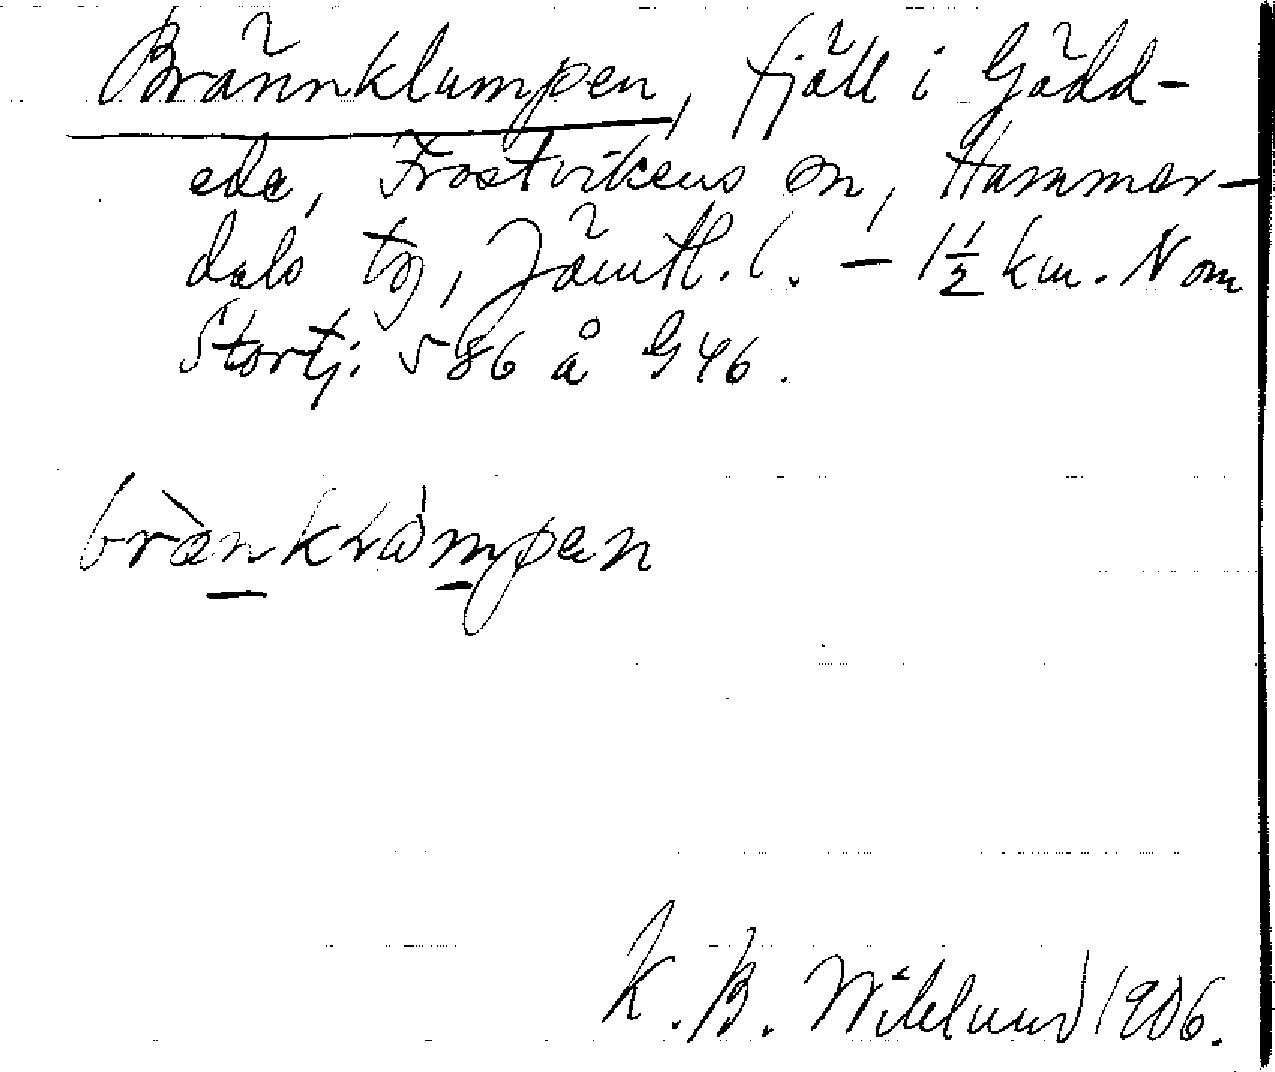 Brännklumpen, fjäll i Gädd-
ede, Frostvikens sn, Hammer-
dals tg, Jämtl. l. – 1½ km. N om
Stortj. 586 å G46.
K. B. Wiklund 1906.